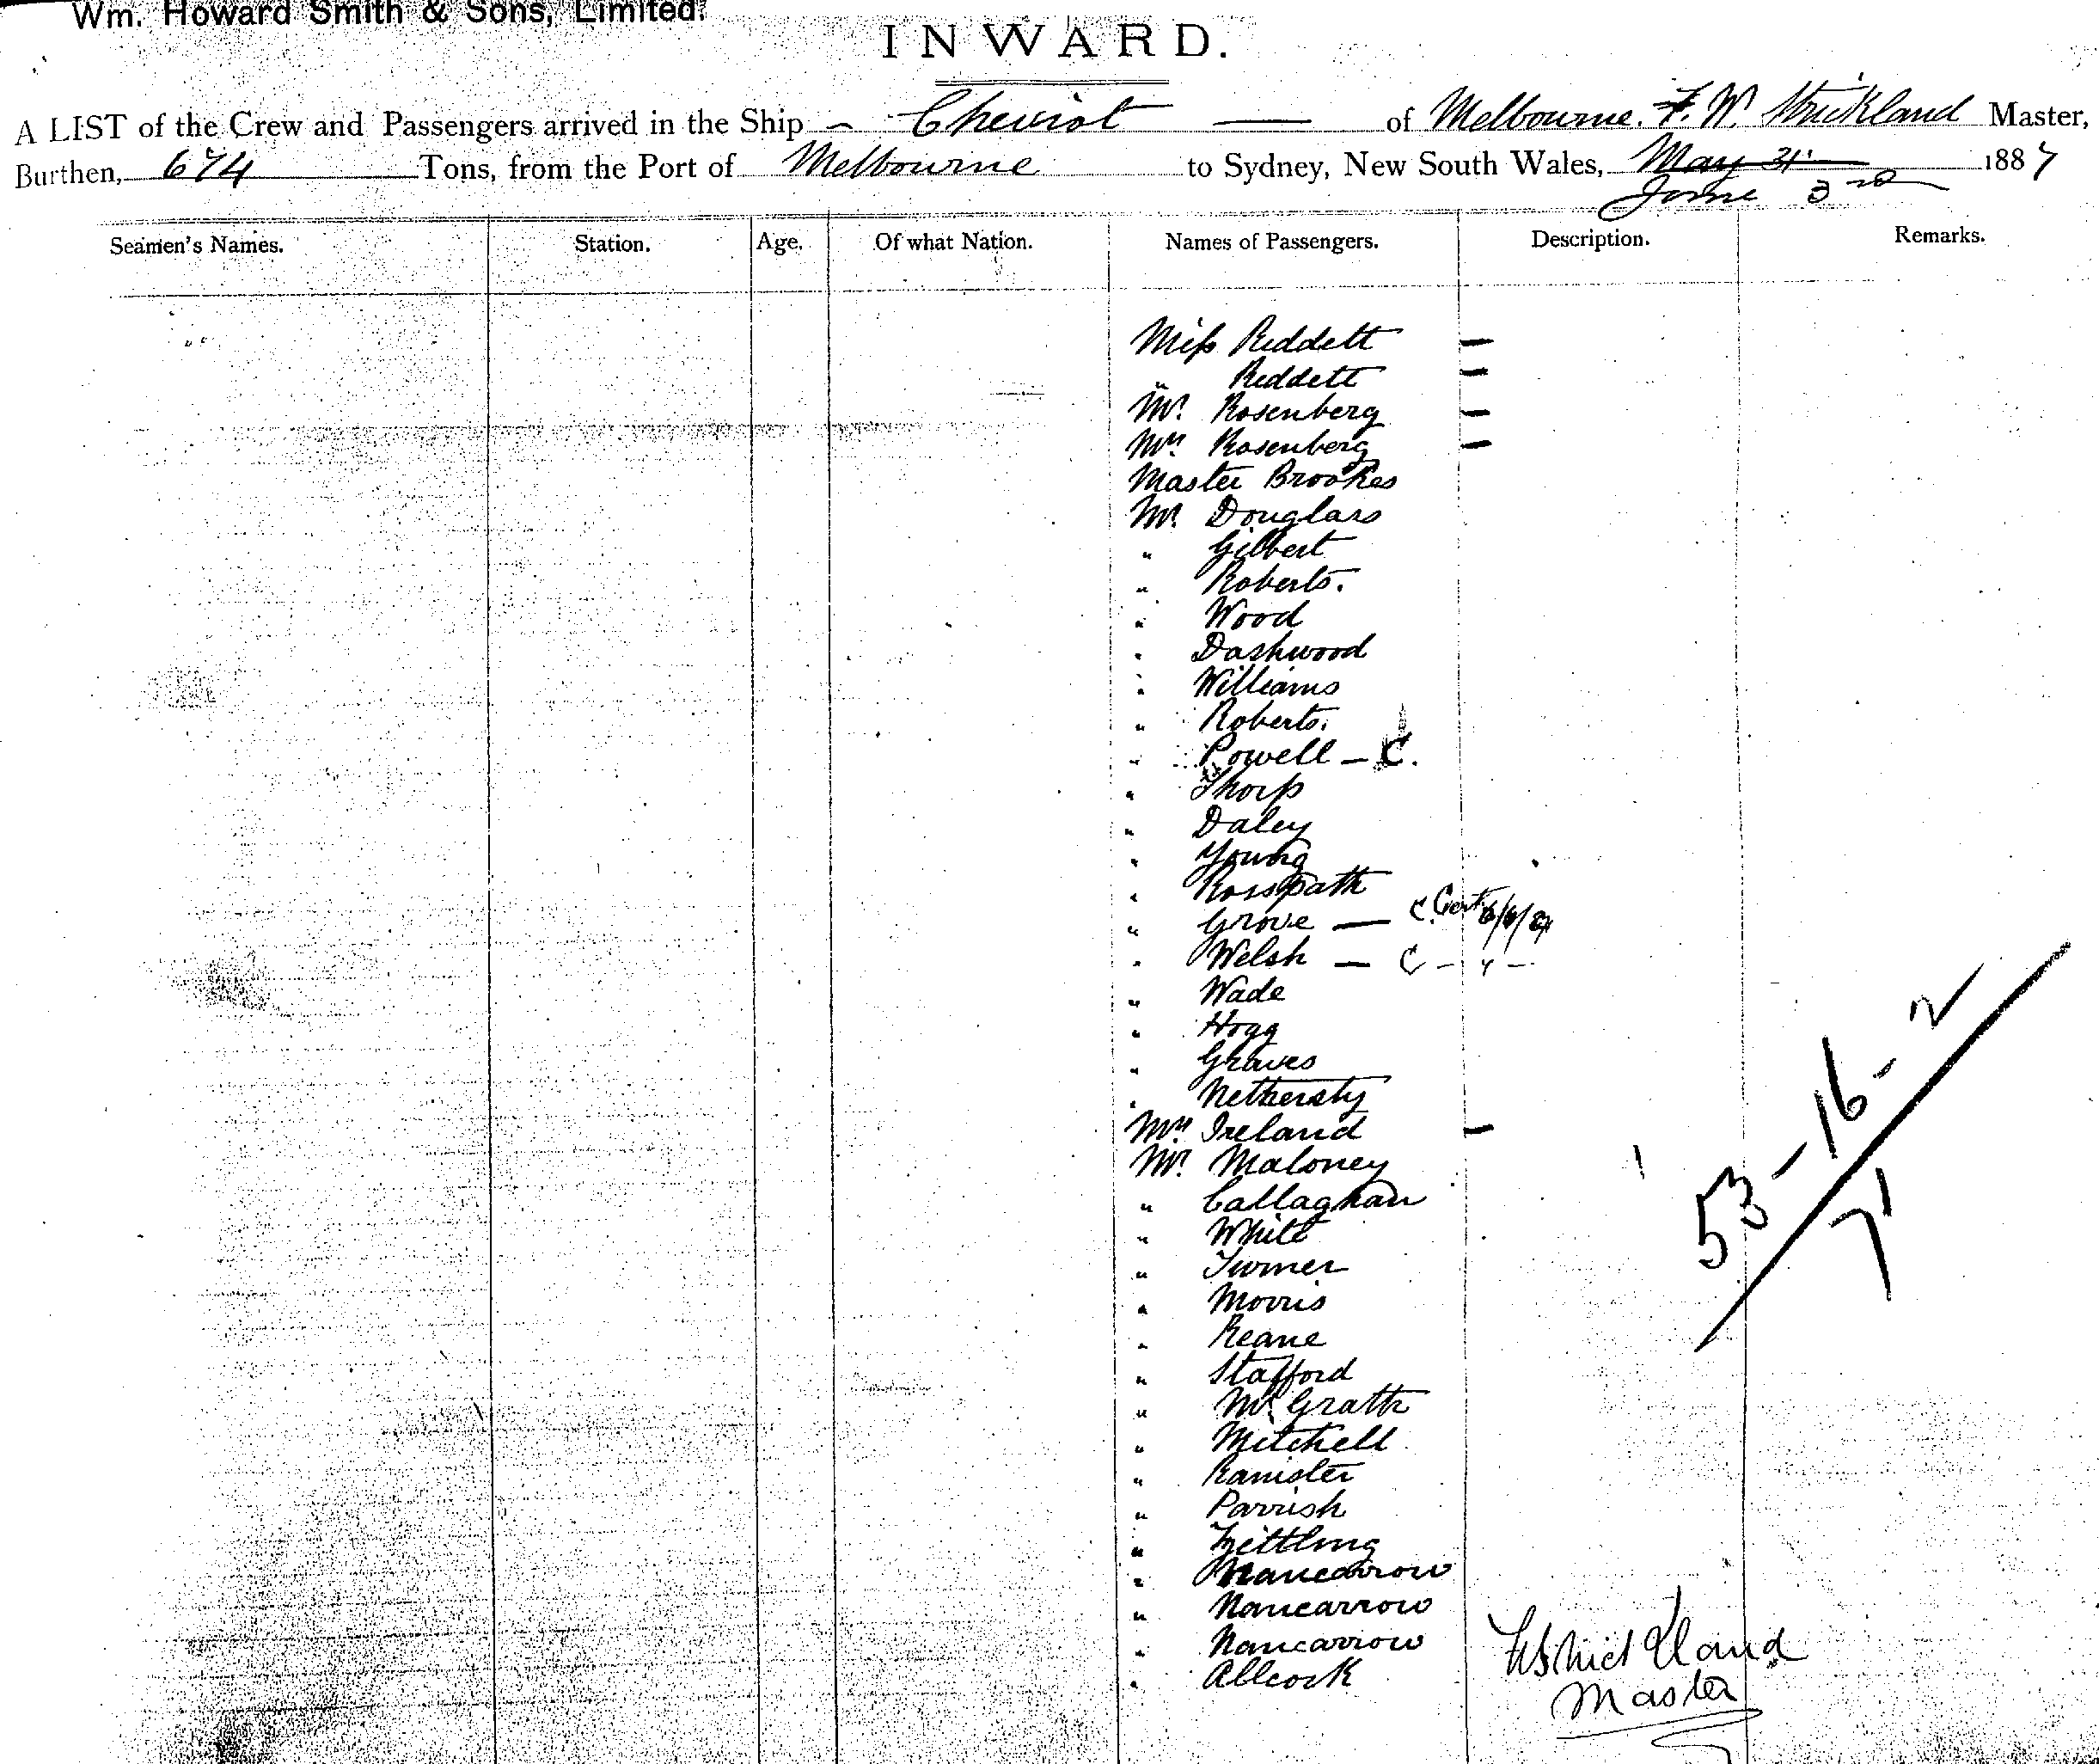 Wm. Howard Smith & Sons, Limited.
INWARD.
A LIST of the Crew and Passengers arrived in the Ship – Cheviot — of Melbourne. F. W. Strickland Master,
Burthen, 674 Tons, from the Port of Melbourne to Sydney, New South Wales, May 31st 1887
June 3rd
Seamen's Names. Station. Age. Of what Nation. Names of Passengers. Description. Remarks.
Miss Riddett —
" Riddett —
Mr. Rosenberg —
Mrs. Rosenberg —
Master Brookes
Mr. Douglass
" Gilbert
" Roberts.
" Wood
" Dashwood
" Williams
" Roberts.
" Powell – C.
" Thorp
" Daley
" Young
" Rosspath
" Grove — C. Cert 6/6/87
" Welsh — C – " –
" Wade
" Hogg
" Graves
" Nethersty
Mrs. Ireland —
Mr. Maloney
" Callaghan
" White
" Turner
" Morris
" Keane
" Stafford
" McGrath
" Mitchell
" Banister
" Parrish
" Zeittling
" Nancarrow
" Nancarrow
" Nancarrow
" Allcock
53 – 16 – 2
71
FWStrickland
Master